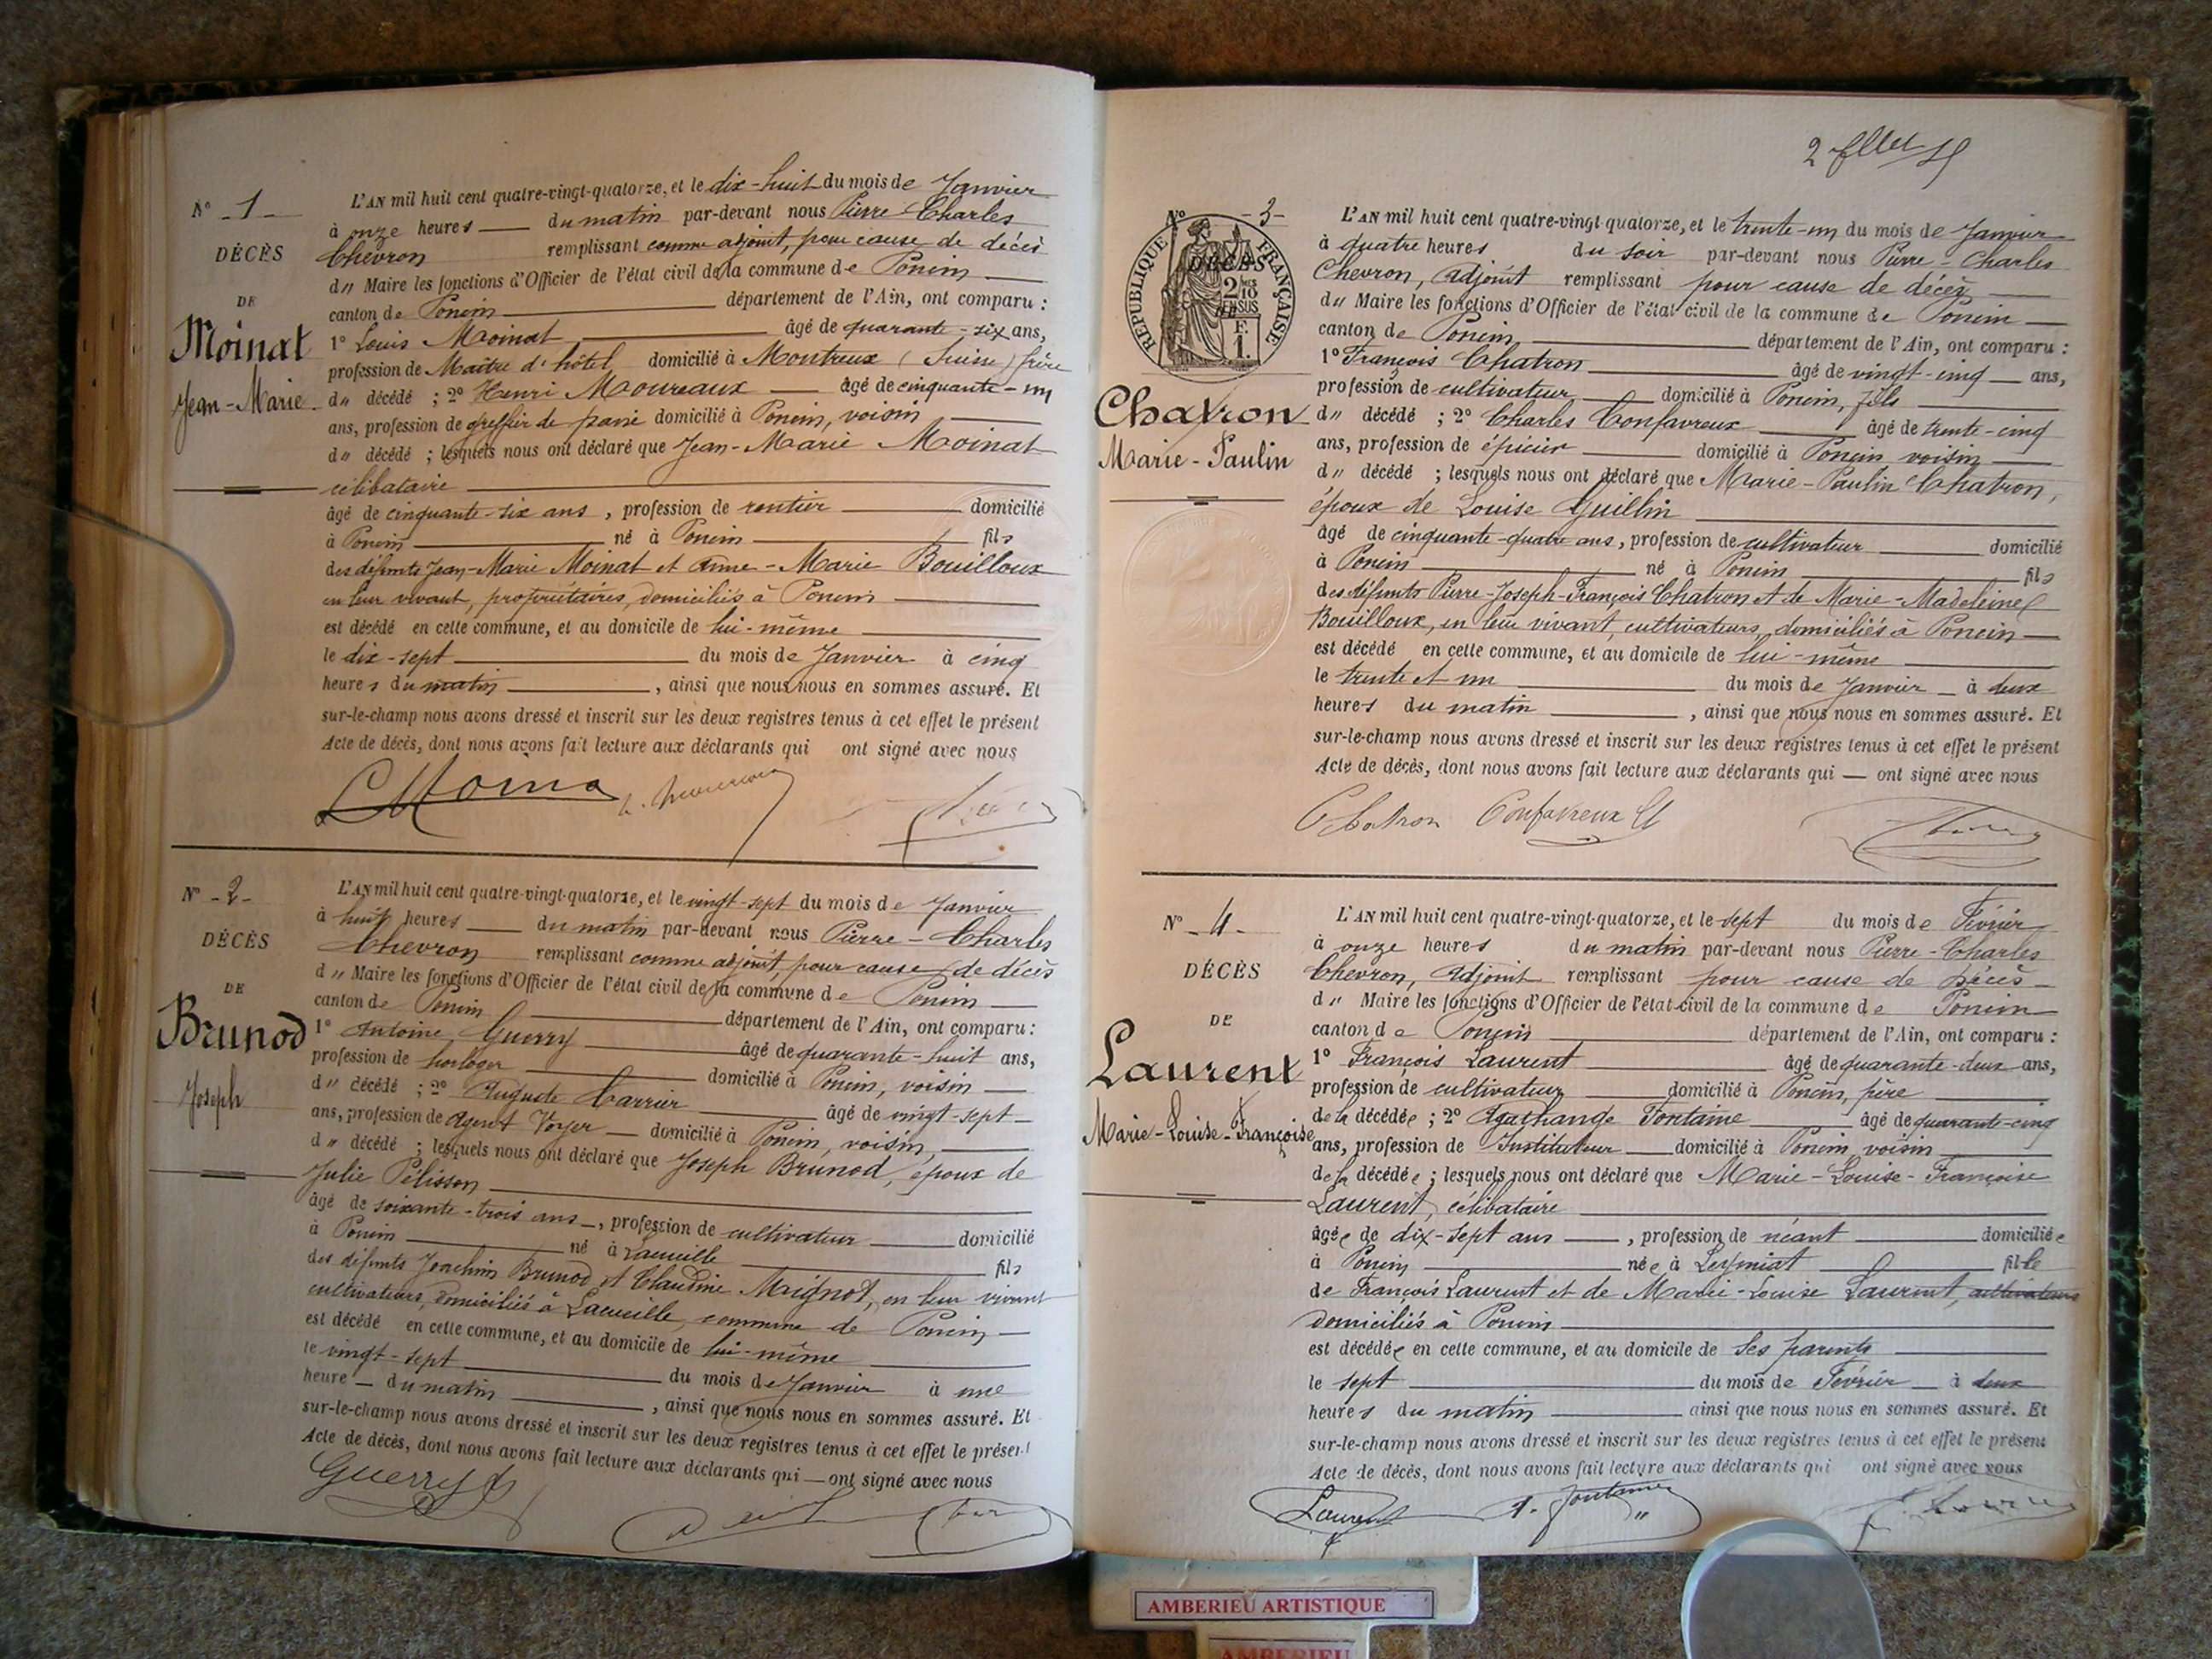 N° - 1 -
DÉCÈS
DE
Moinat
Jean-Marie
L'AN mil huit cent quatre-vingt-quatorze, et le dix-huit du mois de Janvier
à onze heures du matin par-devant nous Pierre-Charles
Chevron remplissant comme adjoint, pour cause de décès
d" Maire les fonctions d'Officier de l'état civil de la commune de Poncin
canton de Poncin département de l'Ain, ont comparu :
1° Louis Moinat âgé de quarante-six ans,
profession de Maître d'hôtel domicilié à Montreux (Suisse) frère
d" décédé ; 2° Henri Moureaux âgé de cinquante-un
ans, profession de greffier de paix domicilié à Poncin, voisin
d" décédé ; lesquels nous ont déclaré que Jean-Marie Moinat
célibataire
âgé de cinquante-six ans, profession de rentier domicilié
à Poncin né à Poncin fils
des défunts Jean-Marie Moinat et Anne-Marie Bouilloux
en leur vivant, propriétaires, domiciliés à Poncin
est décédé en cette commune, et au domicile de lui-même
le dix-sept du mois de Janvier à cinq
heures du matin, ainsi que nous nous en sommes assuré. Et
sur-le-champ nous avons dressé et inscrit sur les deux registres tenus à cet effet le présent
Acte de décès, dont nous avons fait lecture aux déclarants qui ont signé avec nous
L Moina
N° - 2 -
DÉCÈS
DE
Brunod
Joseph
L'AN mil huit cent quatre-vingt-quatorze, et le vingt-sept du mois de Janvier
à huit heures du matin par-devant nous Pierre-Charles
Chevron remplissant comme adjoint, pour cause de décès
d" Maire les fonctions d'Officier de l'état civil de la commune de Poncin
canton de Poncin département de l'Ain, ont comparu :
1° Antoine Guerry âgé de quarante-huit ans,
profession de horloger domicilié à Poncin, voisin
d" décédé ; 2° Auguste Carrier âgé de vingt-sept
ans, profession de Agent Voyer domicilié à Poncin, voisin,
d" décédé ; lesquels nous ont déclaré que Joseph Brunod, époux de
Julie Pélisson
âgé de soixante-trois ans, profession de cultivateur domicilié
à Poncin né à Lacueille fils
des défunts Joachim Brunod et Claudine Maignot, en leur vivant
cultivateurs, domiciliés à Lacueille, commune de Poncin
est décédé en cette commune, et au domicile de lui-même
le vingt-sept du mois de Janvier à une
heure du matin, ainsi que nous nous en sommes assuré. Et
sur-le-champ nous avons dressé et inscrit sur les deux registres tenus à cet effet le présent
Acte de décès, dont nous avons fait lecture aux déclarants qui ont signé avec nous
Guerry
2
N° - 3 -
DÉCÈS
RÉPUBLIQUE FRANÇAISE
Chatron
Marie-Paulin
L'AN mil huit cent quatre-vingt-quatorze, et le trente-un du mois de Janvier
à quatre heures du soir par-devant nous Pierre-Charles
Chevron, Adjoint remplissant pour cause de décès
d" Maire les fonctions d'Officier de l'état civil de la commune de Poncin
canton de Poncin département de l'Ain, ont comparu :
1° François Chatron âgé de vingt-cinq ans,
profession de cultivateur domicilié à Poncin, fils
d" décédé ; 2° Charles Confavreux âgé de trente-cinq
ans, profession de épicier domicilié à Poncin voisin
d" décédé ; lesquels nous ont déclaré que Marie-Paulin Chatron,
époux de Louise Guillin
âgé de cinquante-quatre ans, profession de cultivateur domicilié
à Poncin né à Poncin fils
des défunts Pierre-Joseph-François Chatron et de Marie-Madeleine
Bouilloux, en leur vivant, cultivateurs, domiciliés à Poncin
est décédé en cette commune, et au domicile de lui-même
le trente et un du mois de Janvier à deux
heures du matin, ainsi que nous nous en sommes assuré. Et
sur-le-champ nous avons dressé et inscrit sur les deux registres tenus à cet effet le présent
Acte de décès, dont nous avons fait lecture aux déclarants qui — ont signé avec nous
Chatron Confavreux
N° - 4 -
DÉCÈS
DE
Laurent
Marie-Louise-Françoise
L'AN mil huit cent quatre-vingt-quatorze, et le sept du mois de Février
à onze heures du matin par-devant nous Pierre-Charles
Chevron, Adjoint remplissant pour cause de Décès
d" Maire les fonctions d'Officier de l'état-civil de la commune de Poncin
canton de Poncin département de l'Ain, ont comparu :
1° François Laurent âgé de quarante-deux ans,
profession de cultivateur domicilié à Poncin, père
de la décédée ; 2° Agathange Fontaine âgé de quarante-cinq
ans, profession de Instituteur domicilié à Poncin voisin
de la décédée ; lesquels nous ont déclaré que Marie-Louise-Françoise
Laurent, célibataire
âgée de dix-sept ans, profession de néant domiciliée
à Poncin née à Leymiat fille
de François Laurent et de Marie-Louise Laurent, cultivateurs
domiciliés à Poncin
est décédée en cette commune, et au domicile de ses parents
le sept du mois de Février à deux
heures du matin ainsi que nous nous en sommes assuré. Et
sur-le-champ nous avons dressé et inscrit sur les deux registres tenus à cet effet le présent
Acte de décès, dont nous avons fait lecture aux déclarants qui ont signé avec nous
Laurent A. Fontaine
AMBERIEU ARTISTIQUE
AMBERIEU